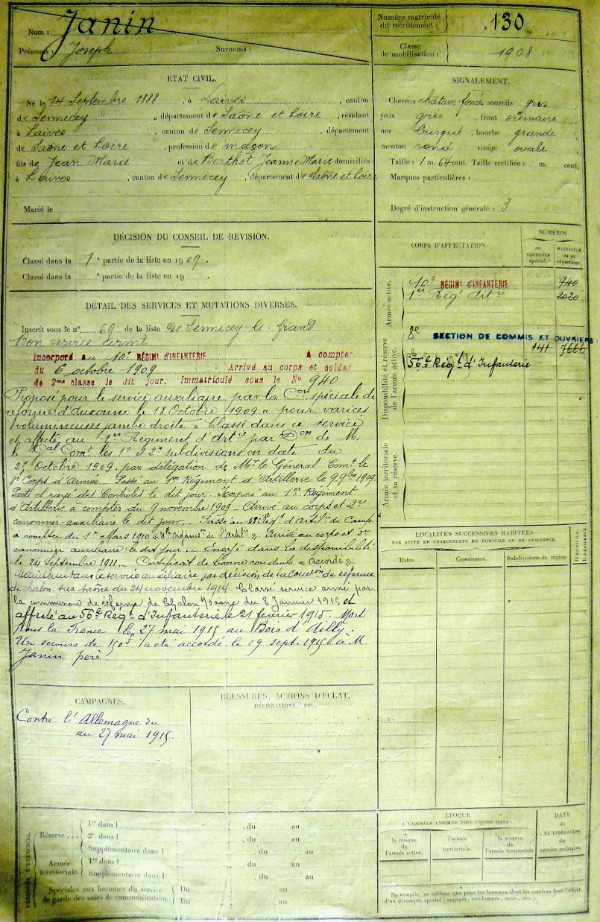 Nom : Janin
Prénoms : Joseph Surnoms :
Numéro matricule du recrutement : 130
Classe de mobilisation : 1908
ÉTAT CIVIL.
Né le 14 Septembre 1888, à Laives, canton
de Sennecey, département de Saône et Loire, résidant
à Laives, canton de Sennecey, département
de Saône et Loire, profession de maçon
fils de Jean Marie et de Berthot Jeanne Marie domiciliés
à Laives, canton de Sennecey, département de Saône et Loire
Marié le
SIGNALEMENT.
Cheveux châtain foncé sourcils gris
yeux gris, front ordinaire
nez busqué, bouche grande
menton rond visage ovale
Taille : 1 m. 64 cent. Taille rectifiée : m. cent.
Marques particulières :
Degré d'instruction générale : 3
DÉCISION DU CONSEIL DE RÉVISION.
Classé dans la 1e partie de la liste en 1909.
Classé dans la partie de la liste en 19
DÉTAIL DES SERVICES ET MUTATIONS DIVERSES.
Inscrit sous le n° 69 de la liste de Sennecey-le-Grand
Bon service armé
Incorporé au 10e RÉGIMENT D'INFANTERIE A compter
du 6 octobre 1909 Arrivé au corps et soldat
de 2me classe le dit jour. Immatriculé sous le No 940
Proposé pour le service auxiliaire par la Con spéciale de
réforme d'Auxonne le 18 Octobre 1909 pour varices
volumineuses jambe droite. Classé dans ce service
et affecté au 1er Régiment d'Artie par Don de M.
le Gal Comt les 1e et 2e subdivisions en date du
27 Octobre 1909, par délégation de Mr le Général Comt le
Corps d'Armée. Passé au 1er Régiment d'Artillerie le 9 9bre 1909.
Rayé des contrôles le dit jour. 1er Régiment
d'Artillerie à compter du 9 novembre 1909. Arrivé au corps et 2e
canonnier auxiliaire le dit jour. Passé au Régt d'Artie de Camp
à compter du 1er Mars 1910. Arrivé au corps et 2e
canonnier auxiliaire le dit jour. dans la disponibilité
le 24 septembre 1911. Certificat de bonne conduite « Accordé »
Maintenu dans le service auxiliaire par décision de la Commion de réforme
de Chalon sur Saône du 24 novembre 1914. Classé service armé par
la commission de réforme de Chalon du 8 Janvier 1915 et
affecté au 56e Régt d'Infanterie le 21 février 1915. Mort
pour la France le 27 mai 1915 au Bois d'Ailly.
Un secours de 150f a été accordé le 19 sept. 1915 à M.
Janin père.
CORPS D'AFFECTATION.
NUMÉROS
au contrôle spécial.
matricule ou au répertoire.
Armée active.
10e RÉGIMENT D'INFANTERIE 940
1er Régt d'Artie 2020
Disponibilité et réserve de l'armée active.
8e SECTION DE COMMIS ET OUVRIERS 141 7666
56e Régt d'Infanterie
Armée territoriale et sa réserve.
LOCALITÉS SUCCESSIVES HABITÉES
PAR SUITE DE CHANGEMENT DE DOMICILE OU DE RÉSIDENCE.
Dates. Communes. Subdivisions de région.
CAMPAGNES.
Contre l'Allemagne du
au 27 mai 1915.
BLESSURES, ACTIONS D'ÉCLAT,
DÉCORATIONS, ETC.
Réserve . . . 1er dans l , du au
2e dans l , du au
Supplémentaire dans l , du au
Armée territoriale. 1er dans l , du au
Supplémentaire dans l , du au
Spéciales aux hommes du service de garde des voies de communication. Du au
Du au
ÉPOQUE
À LAQUELLE L'HOMME DOIT PASSER DANS :
la réserve de l'armée active.
l'armée territoriale.
la réserve de l'armée territoriale.
DATE
de LA LIBÉRATION du service militaire.